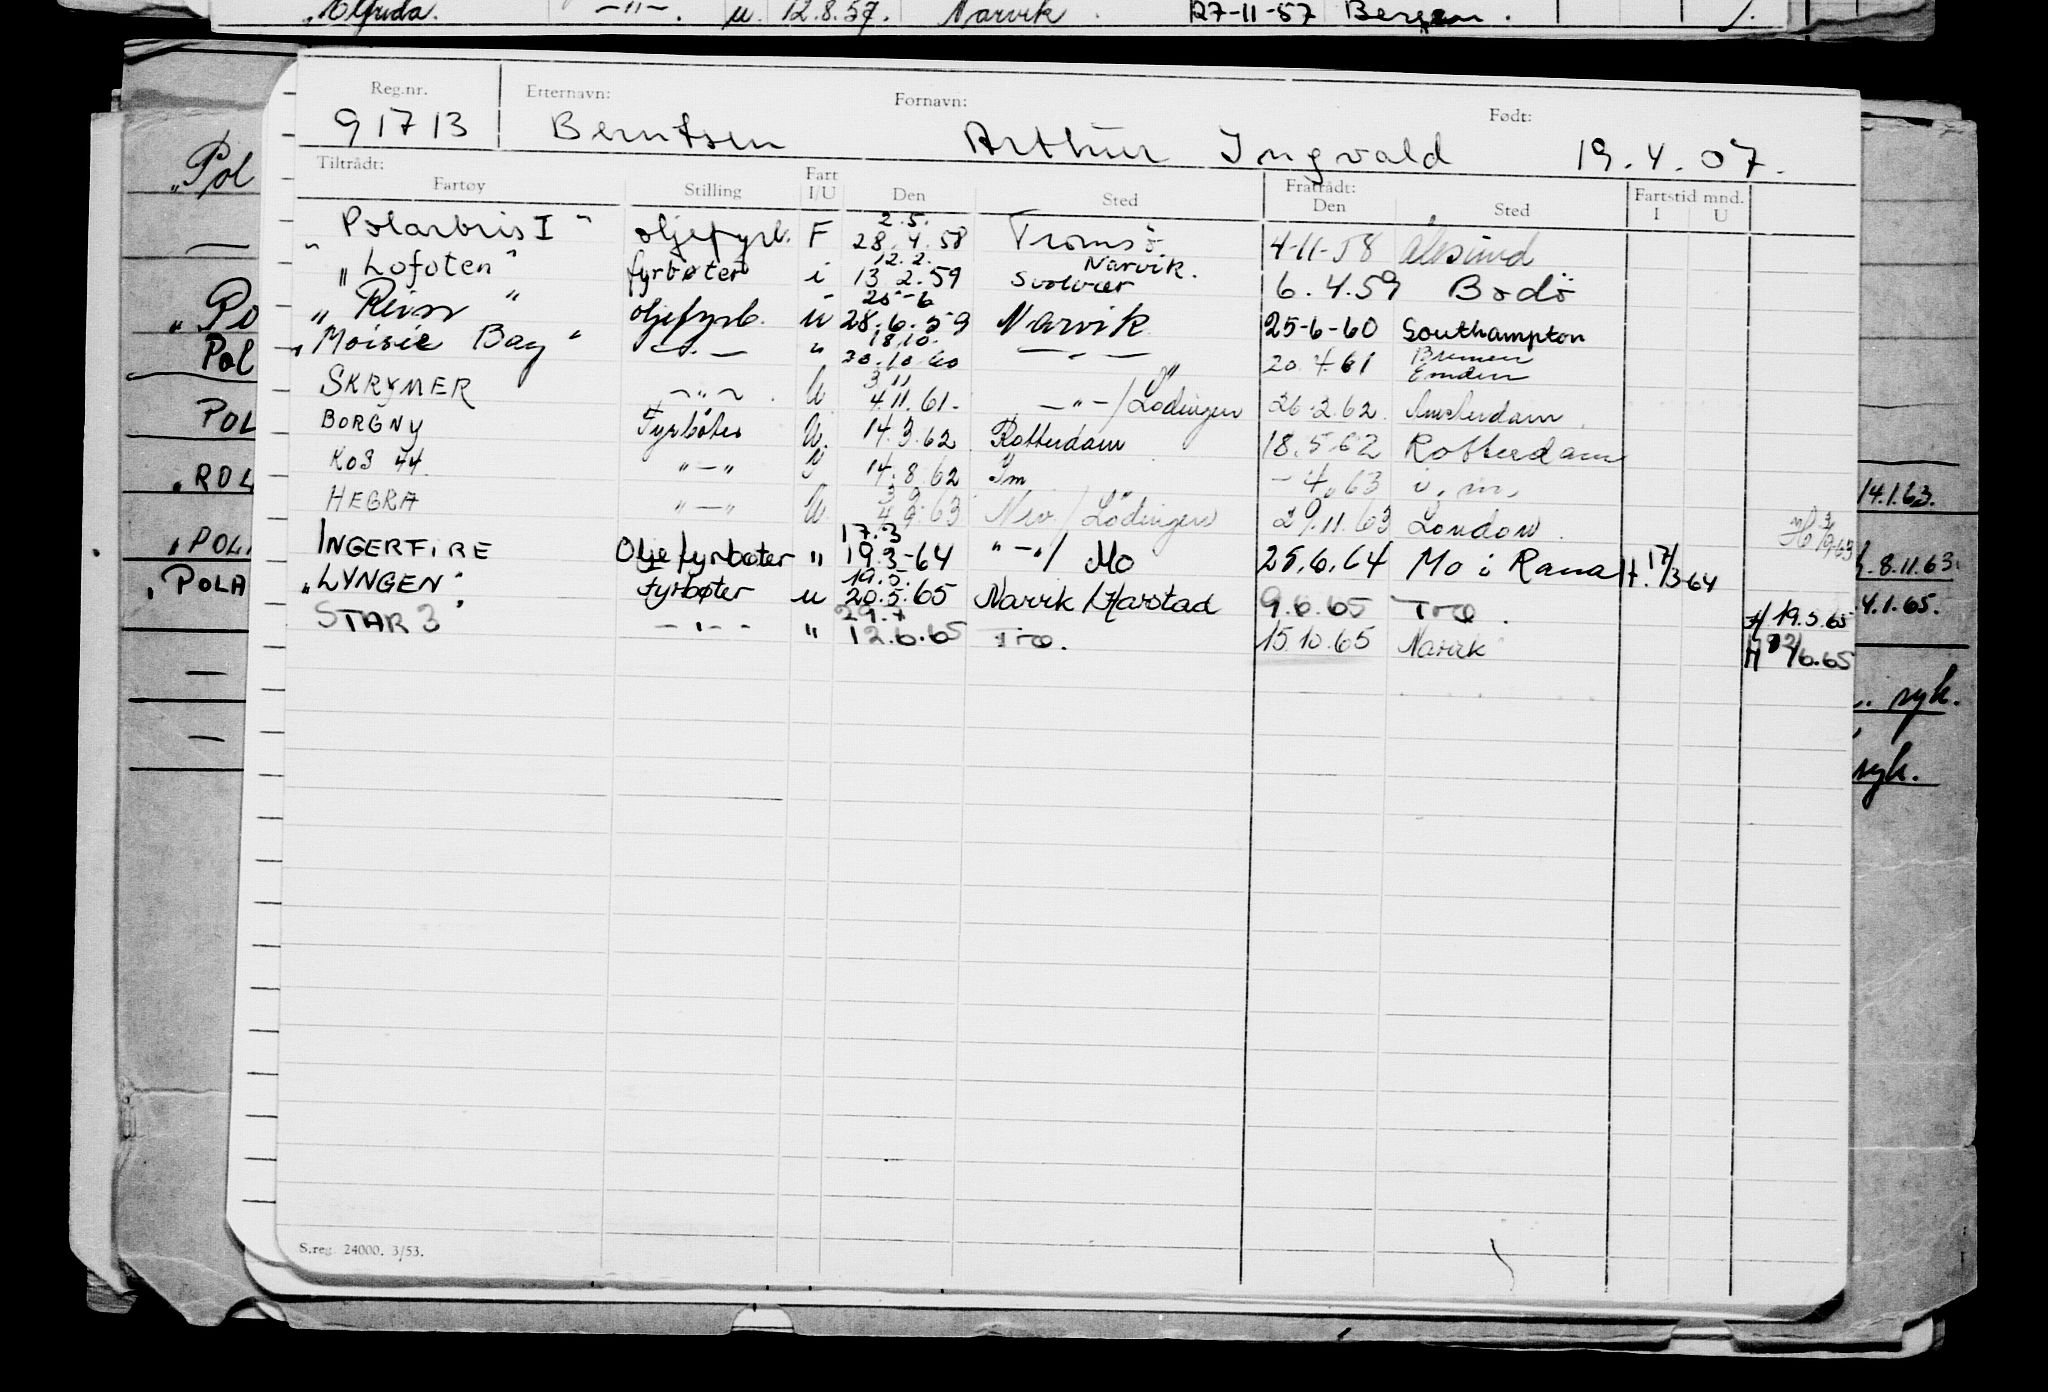 „Elfrida. —"—. u. 12.8.57. Narvik. 27-11-57 Bergen.
Reg.nr. Etternavn: Fornavn: Født:
91713 Berntsen Arthur Ingvald 19.4.07.
Tiltrådt: Fratrådt:
Fartøy Stilling Fart I/U Den Sted Den Sted Fartstid mnd. I U
„Polarbris I" oljefyrb. F 2.5. 28.4.58 Tromsö 4-11-58 Ålesund
„Lofoten" fyrbøter i 12.2. 13.2.59 Narvik. Svolvær 6.4.59 Bodö
„Reinr" oljefyrb. u 25-6 28.6.59 Narvik 25-6-60 Southampton
„Moisie Bay" —"— " 18.10. 20.10.60 —"— 20.4.61 Bremen Emden
SKRYMER —"— U 3.11 4.11.61. —"—/Lödingen 26.2.62. Amsterdam.
BORGNY Fyrbøter U. 14.3.62 Rotterdam 18.5.62 Rotterdam
KOS 44 "—" 14.8.62 Im -4.63 i.m.
HEGRA "—" U. 3.9 4.9.63 Nrv./Lödingen 29.11.63 London. H 3/9.63
INGERFIRE Oljefyrbøter " 17.3 19.3-64 "—"/ Mo 25.6.64 Mo i Rana H. 17/3-64
„LYNGEN" fyrbøter u 19.5. 20.5.65 Narvik/Harstad 9.6.65 Tro. H 19.5.65
STAR 3 —"— " 29.7 12.6.65 Tro. 15.10.65 Narvik
„Pol
„Po
Pol
POL
„ROL 14.1.63.
„POL 8.11.63.
„POLA 4.1.65.
syk.
syk.
S.reg. 24000. 3/53.